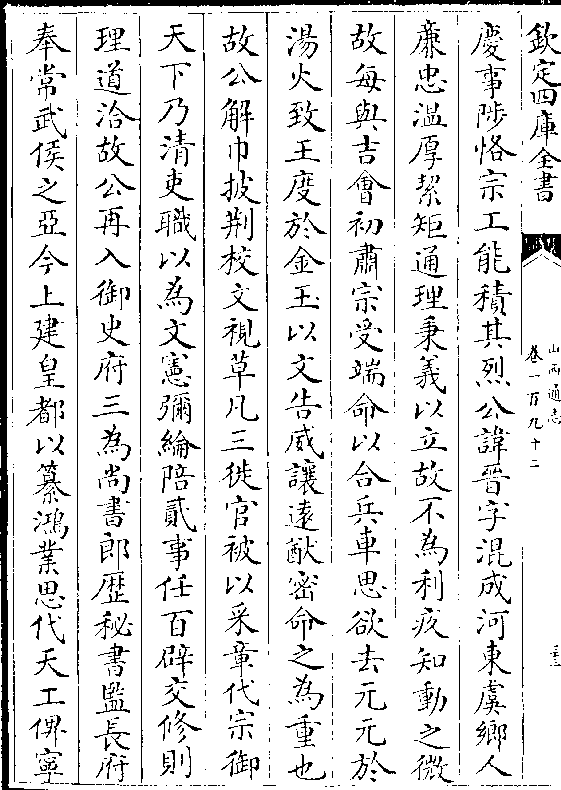 欽定四庫全書
山西通志
卷一百九十二
慶事陟恪宗工能積其烈公諱晉字混成河東虞鄉人
廉忠溫厚絜矩通理秉義以立故不為利疚知動之微
故每與吉會初肅宗受端命以合兵車思欲去元元於
湯火致王度於金玉以文告威讓遠猷密命之為重也
故公解巾披荆校文視草凡三徙官被以采章代宗御
天下乃清吏職以為文憲彌綸陪貳事任百辟交修則
理道洽故公再入御史府三為尚書郎歴秘書監長府
奉常武侯之亞今上建皇都以纂鴻業思代天工俾寧